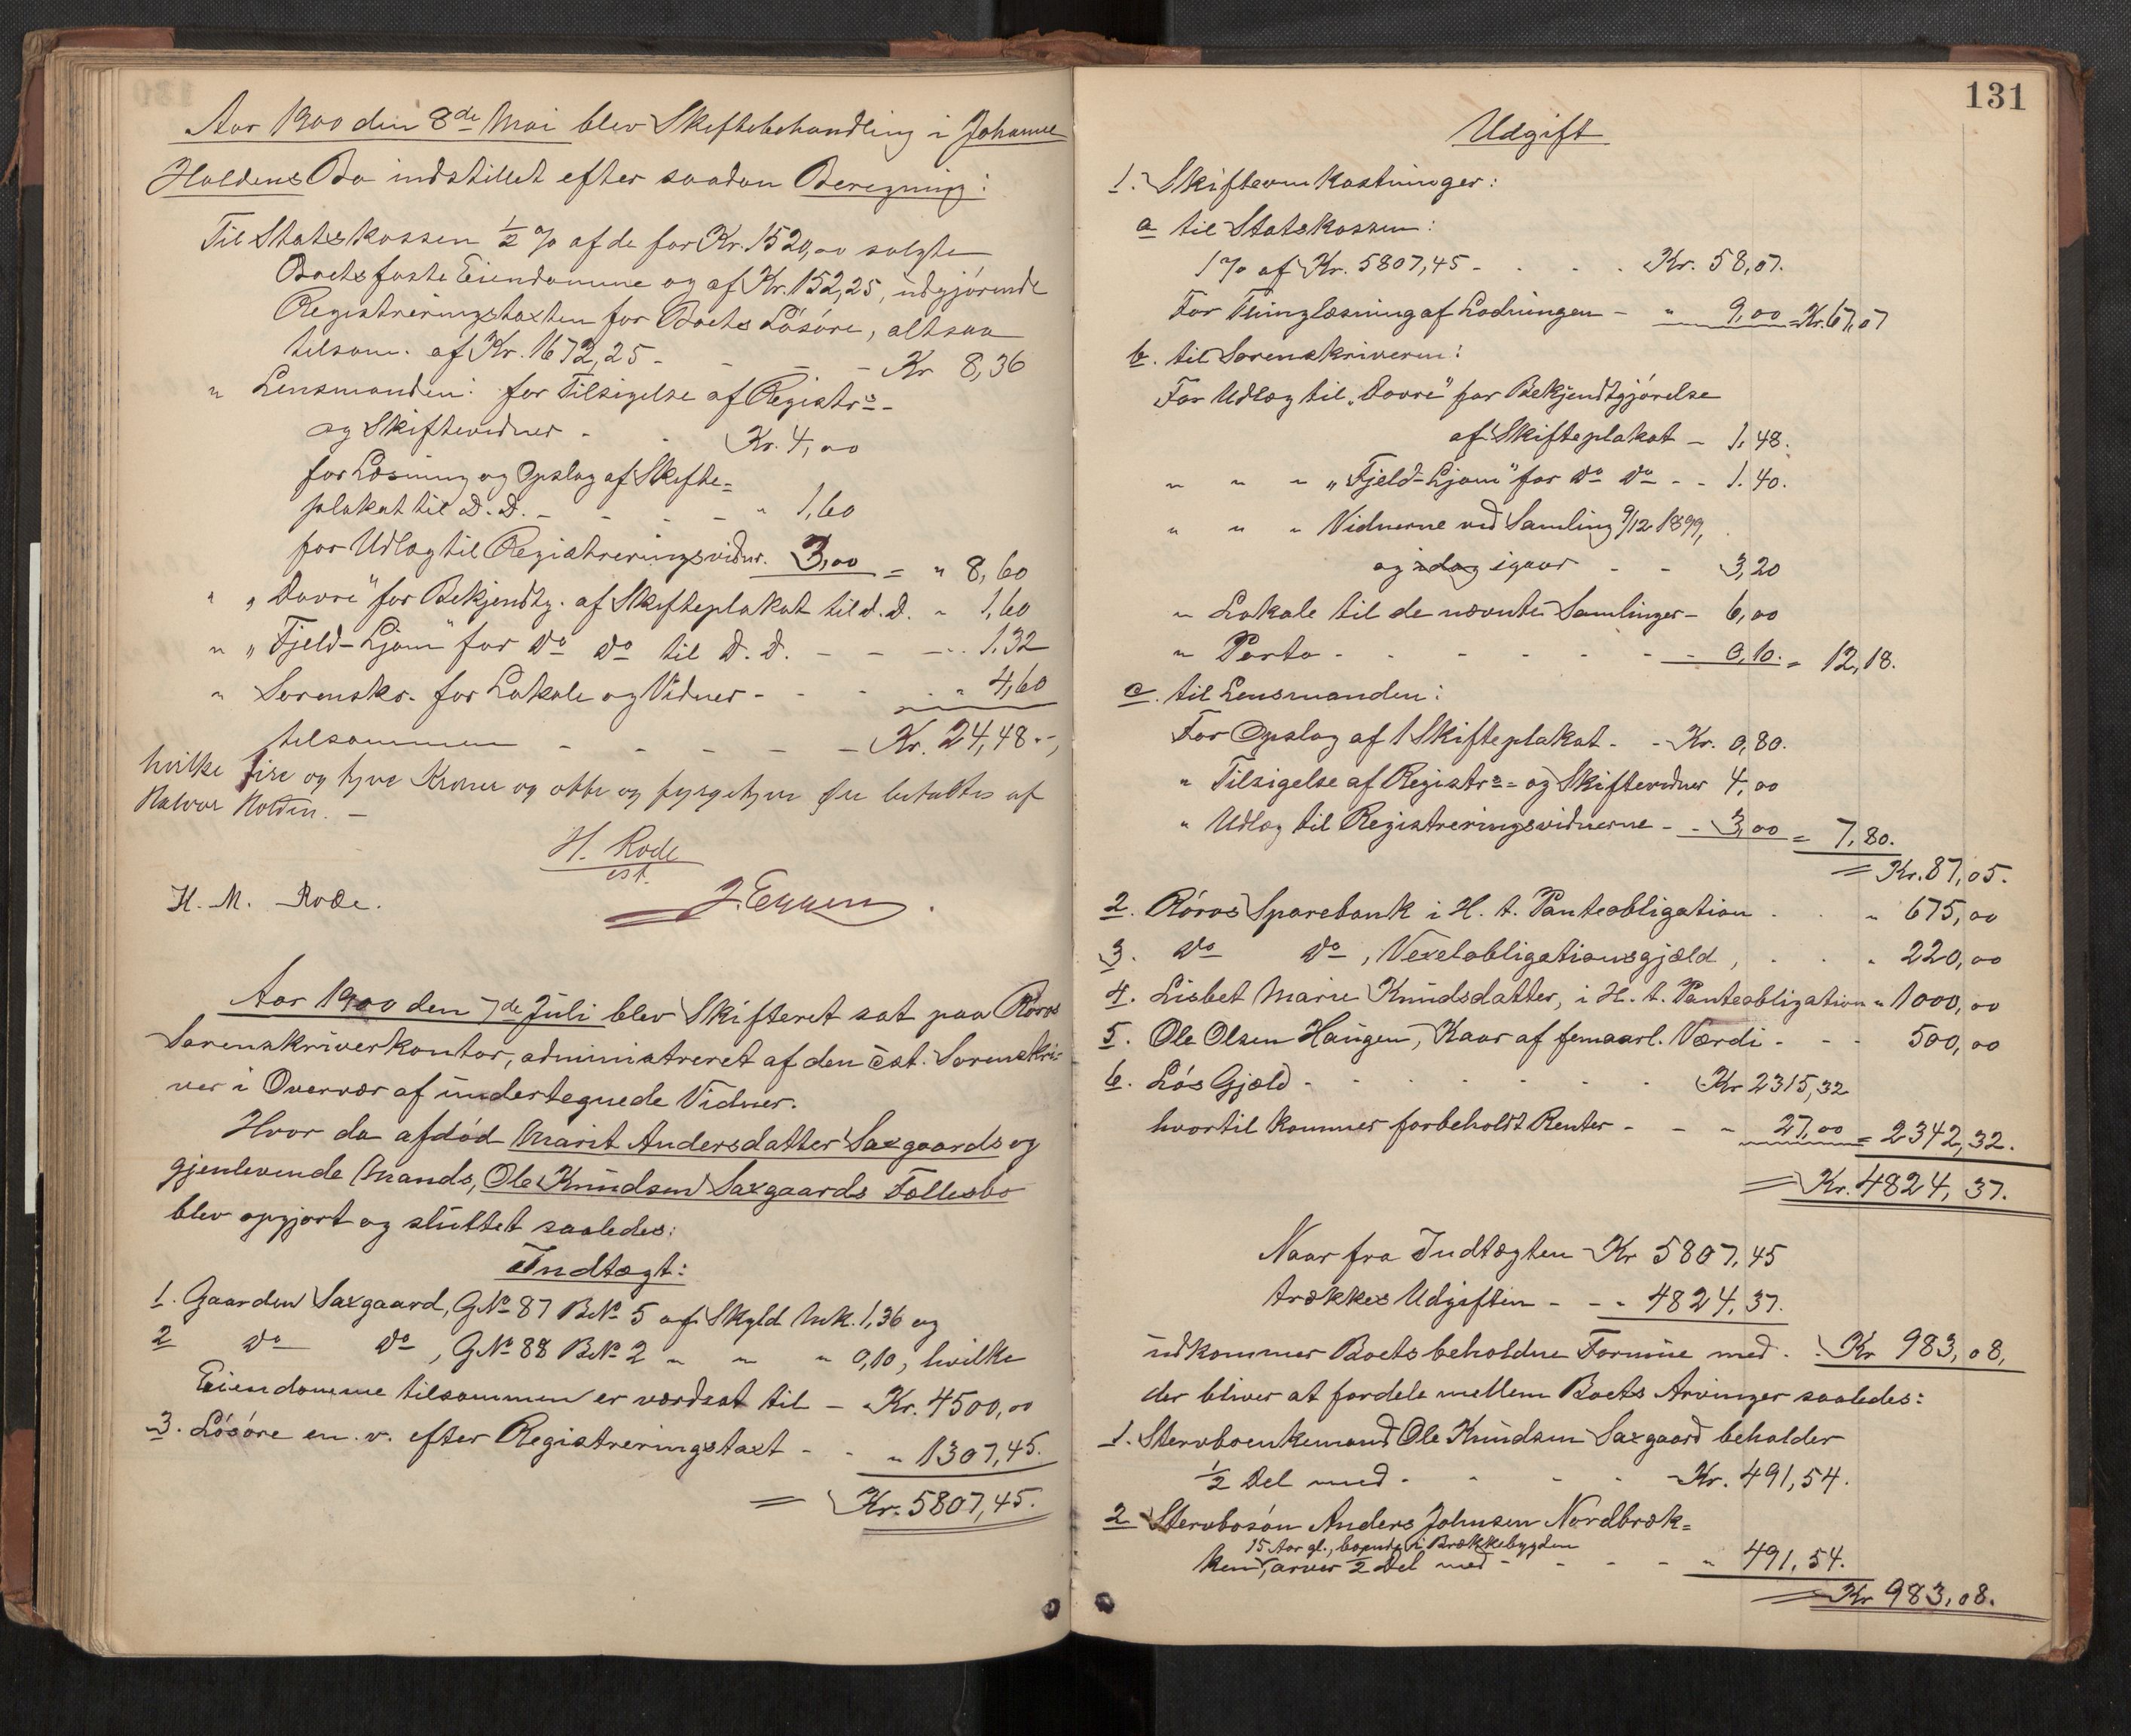 Aar 1900 den 8de Mai blev Skiftebehandling i Johanne
Holdens Bo indstillet efter saadan Beregning:
Til Statskassen ½ % af de for Kr. 1520,00 solgte
Boets faste Eiendomme og af Kr. 152,25, udgjørende
Registreringstaxten for Boets Løsøre, altsaa
tilsam. af Kr. 1672,25 - - - - Kr 8,36
" Lensmanden: for Tilsigelse af Registrs-
og Skiftevidner - - Kr. 4,00
for Læsning og Opslag af Skifte=
plakat til D.D. - - - - " 1,60
for Udlæg til Registreringsvidn. 3,00 = " 8,60
" "Dovre" for Bekjendtg. af Skifteplakat til d.D. " 1,60
" "Fjeld-Ljom" for do do til D.d. - - - 1.32
" Sorenskr. for Lokale og Vidner - - - " 4,60
tilsammen - - - - - Kr. 24,48 -,
hvilke fire og tyve Kroner og otte og fyrgetyve Øre betaltes af
Halvor Holden. -
H. Rode
cst.
H. M. Rode. J. Eggen.
Aar 1900 den 7de Juli blev Skifteret sat paa Røros
Sorenskriverkontor, administreret af den cst. Sorenskri-
ver i Overvær af undertegnede Vidner.
Hvor da afdød Marit Andersdatter Saxgaards og
gjenlevende Mands, Ole Knudsen Saxgaards Fællesbo
blev opgjort og sluttet saaledes:
Indtægt:
1. Gaarden Saxgaard, GNo 87 BNo 5 af Skyld Mk. 1,36 og
2 do do, GNo 88 BNo 2 " " " 0,10, hvilke
Eiendomme tilsammen er værdsat til - Kr. 4500,00
3. Løsøre m.v. efter Registreringstaxt - - " 1307,45.
= Kr. 5807,45.
131
Udgift
1. Skifteomkostninger:
a til Statskassen:
1 % af Kr. 5807,45 - . . . Kr. 58,07.
For Thinglæsning af Lodningen - " 9,00 = Kr. 67,07
b. til Sorenskriveren:
For Udlæg til "Dovre" for Bekjendtgjørelse
af Skifteplakat - 1,48.
" " " "Fjeld-Ljom" for do do - - 1.40.
" " " Vidnerne ved Samling 9/12 1899,
og idag igaar - - 3,20
" Lokale til de nævnte Samlinger - 6,00
" Porto - - - - - - 0,10. = 12,18.
c. til Lensmanden:
For Opslag af 1 Skifteplakat - - Kr. 0,80.
" Tilsigelse af Registrs- og Skiftevidner 4,00
" Udlæg til Registreringsvidnerne - - 3,00 = 7,80.
= Kr. 87,05.
2. Røros Sparebank i H. t. Panteobligation . . " 675,00
3. do do, Vexelobligationsgjæld, . . " 220,00
4. Lisbet Marie Knudsdatter, i H. t. Panteobligation " 1000,00
5. Ole Olsen Haugen, Kaar af femaarl. Værdi - - - 500,00
6. Løs Gjæld - - - - - - Kr 2315,32
hvortil kommer forbeholdt Renter - - " 27,00 = 2342,32.
= Kr. 4824,37.
Naar fra Indtægten - Kr 5807,45
trækkes Udgiften - - " 4824,37.
udkommer Boets beholdne Formue med . . Kr 983,08,
der bliver at fordele mellem Boets Arvinger saaledes:
1. Stervboenkemand Ole Knudsen Saxgaard beholder
½ Del med - - - - Kr. 491,54.
2 Stervbosøn Anders Johnsen Nordbræk=
15 Aar gl., bopæl i Brækkebygden
ken, arver ½ Del med - - - - " 491,54.
= Kr 983,08.